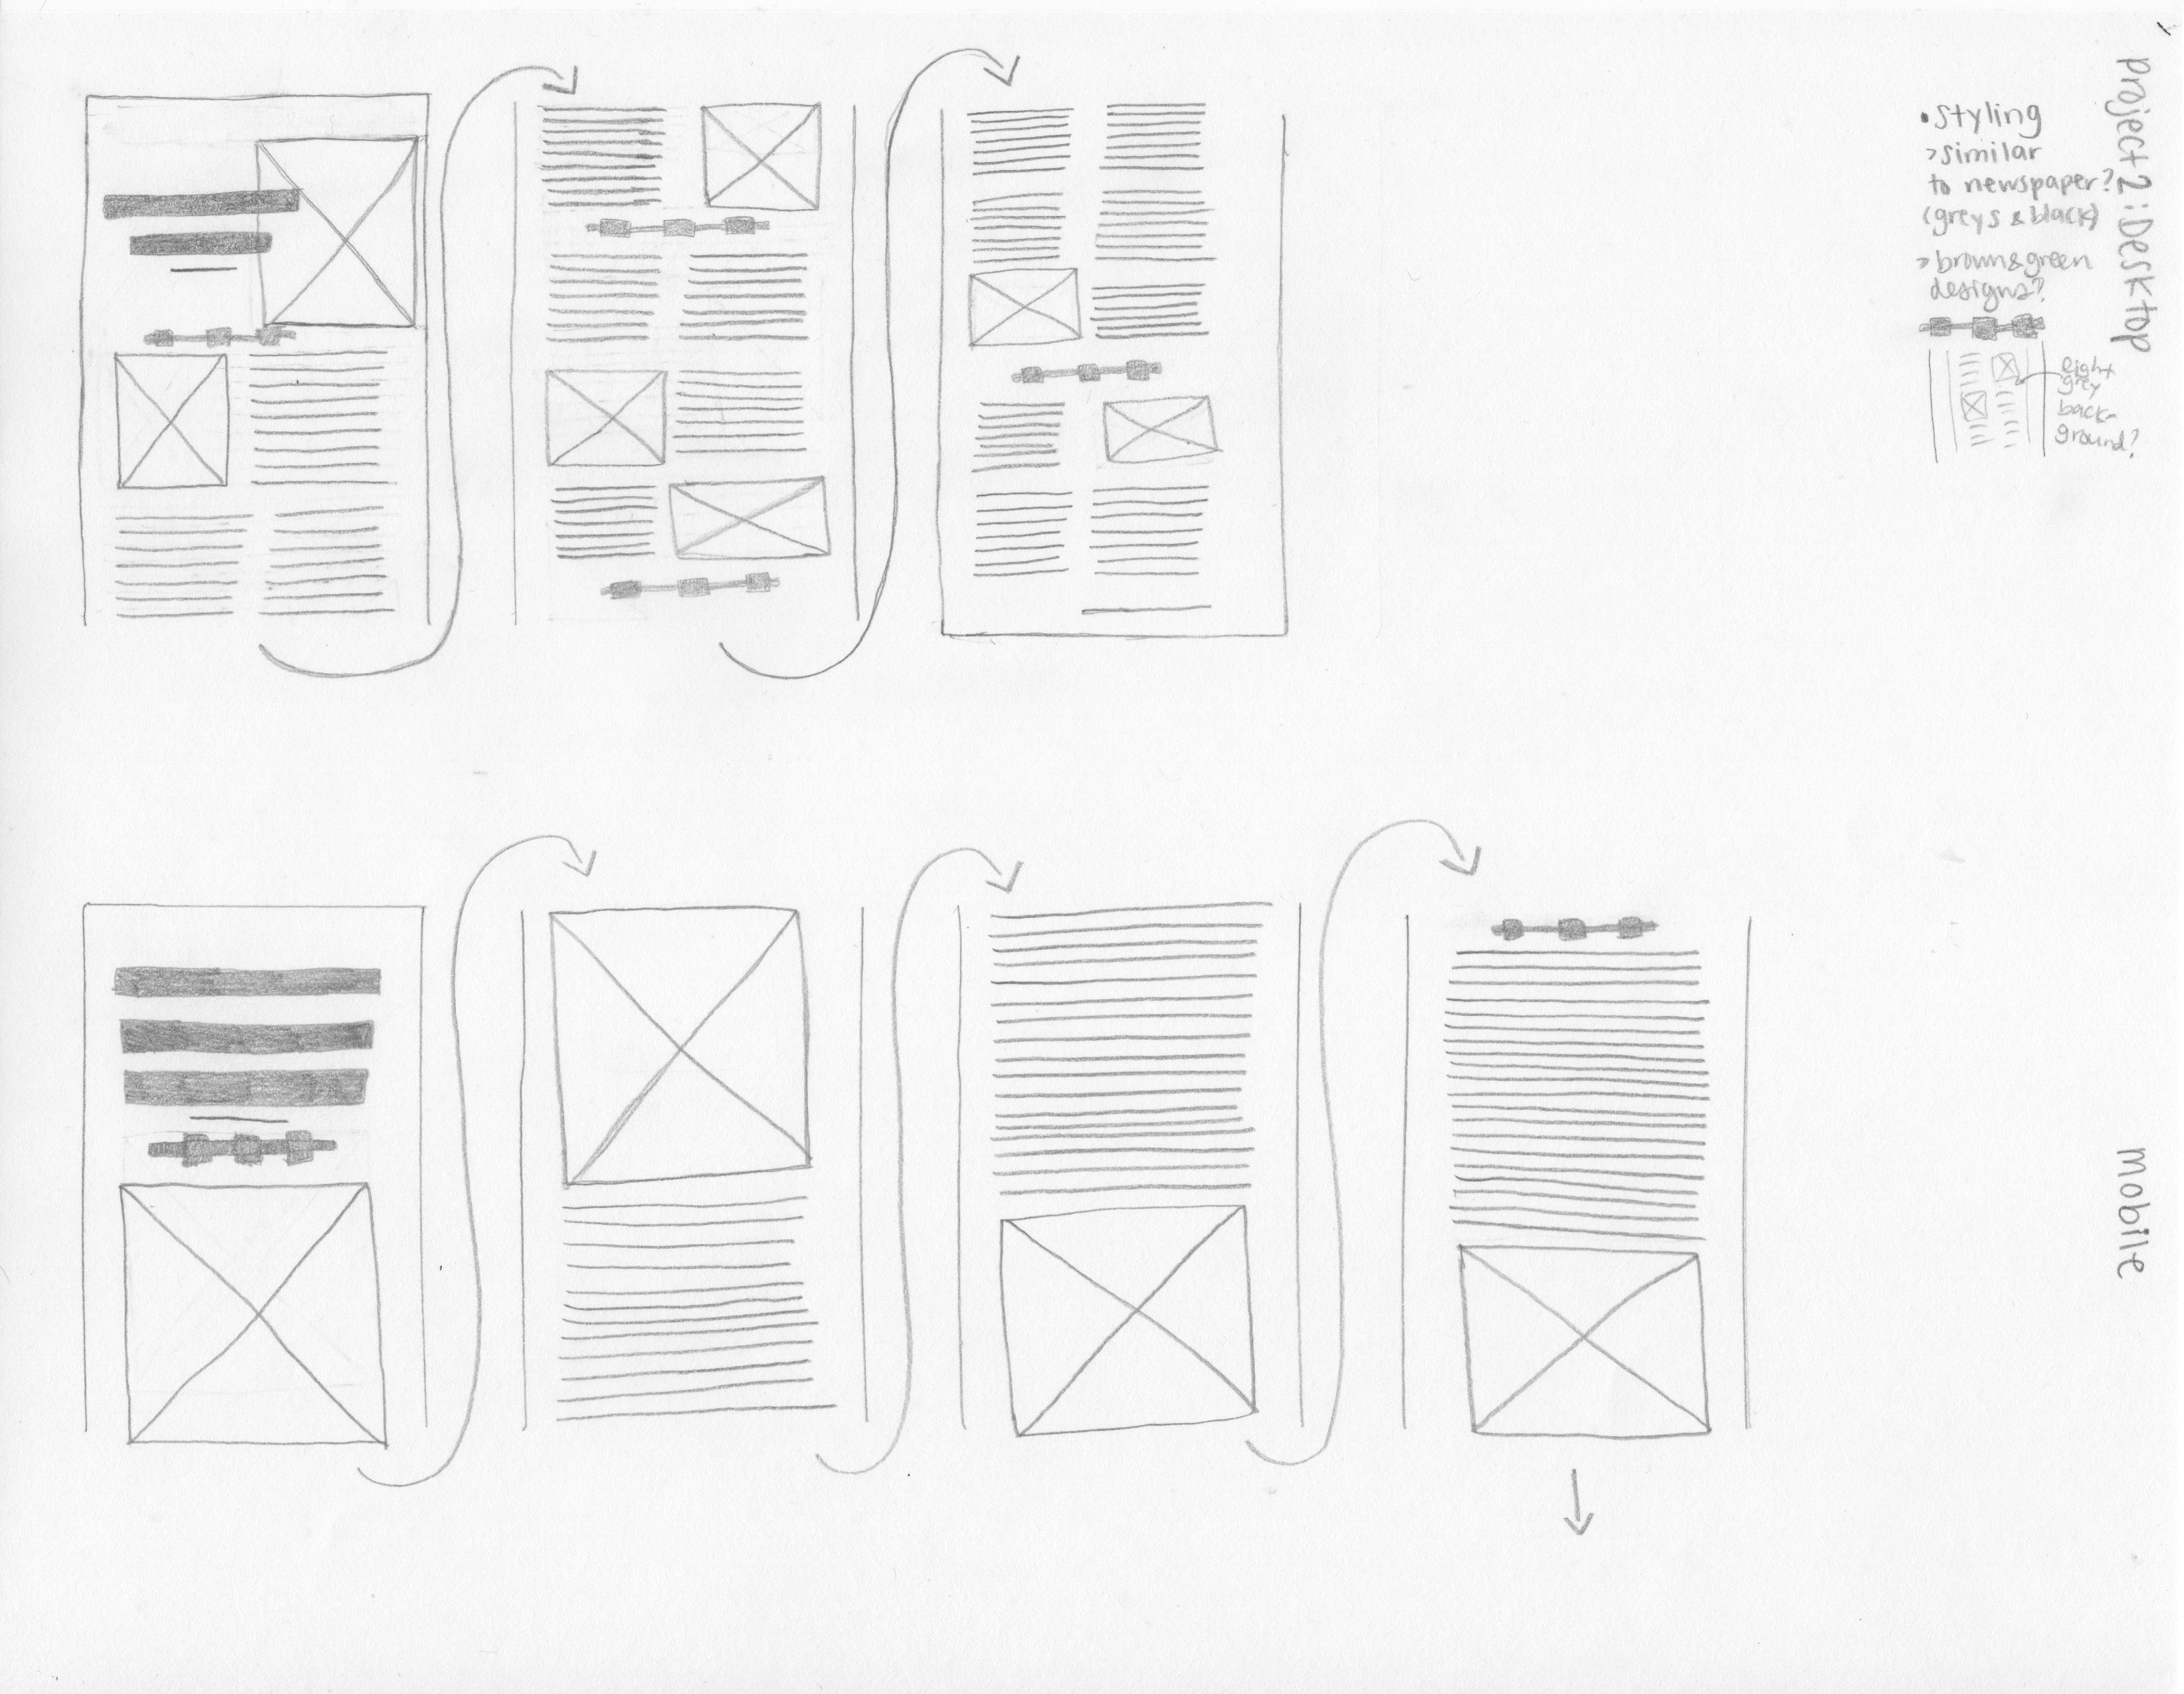 project 2: Desktop
• styling
> similar
to newspaper?
(greys & black)
> brown & green
designs?
light
grey
back-
ground?
mobile